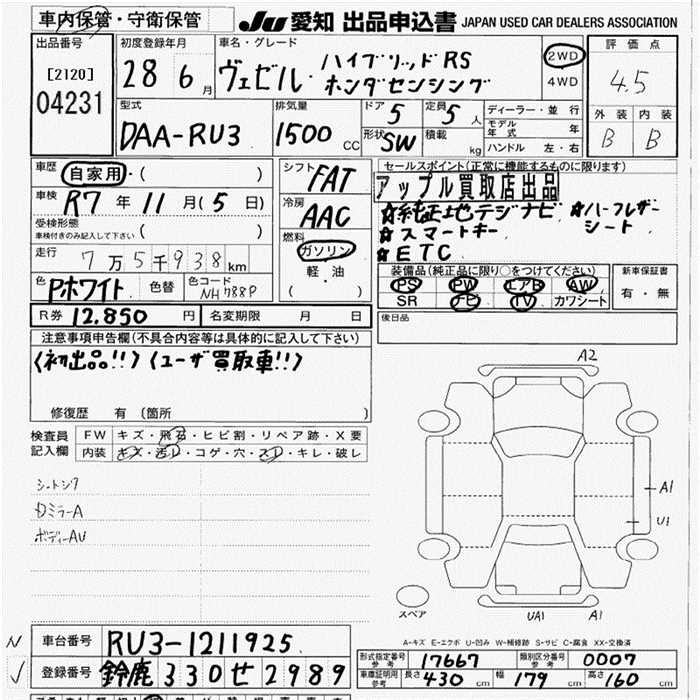 車内保管・守衛保管
JU 愛知 出品申込書 JAPAN USED CAR DEALERS ASSOCIATION
出品番号
[2120]
04231
初度登録年月
28 6月
車名・グレード
ヴェゼル・ハイブリッドRS
ホンダセンシング
2WD
4WD
評価点
4.5
外装 内装
B B
型式
DAA-RU3
排気量
1500 CC
ドア 5
形状 SW
定員 5人
積載 kg
ディーラー・並行
モデル年式 年
ハンドル 左・右
車歴 自家用・( )
車検 R7年11月(5日)
受検形態
車検付きのみ記入して下さい ( )
走行 7万5千938km
色 Pホワイト 色替 色コード NH788P
シフト FAT
冷房 AAC
燃料
ガソリン
軽・油
( )
セールスポイント(正常に機能するものに限ります)
アップル買取店出品
☆純正地デジナビ ☆ハーフレザーシート
☆スマートキー
☆ETC
装備品(純正品に限り○をつけてください)
PS PW エアB AW
SR ナビ TV カワシート
新車保証書
有・無
R券 12,850円 名変期限 月 日
後日品
注意事項申告欄(不具合内容等は具体的に記入して下さい)
〈初出品!!〉〈ユーザ買取車!!〉
修復歴 有(箇所 )
検査員記入欄
FW キズ・飛石・ヒビ割・リペア跡・X要
内装 キズ・汚レ・コゲ・穴・スレ・キレ・破レ
シートシワ
ロミラーA
ボディーAU
A2
A1
U1
スペア
UA1 A1
A-キズ E-エクボ U-凹み W-補修跡 S-サビ C-腐食 XX-交換済
N
車台番号 RU3-1211925
登録番号 鈴鹿 330 せ 2989
型式指定番号 参考 17667 類別区分番号 参考 0007
車庫証明用 参考 長さ 430cm 幅 179cm 高さ 160cm